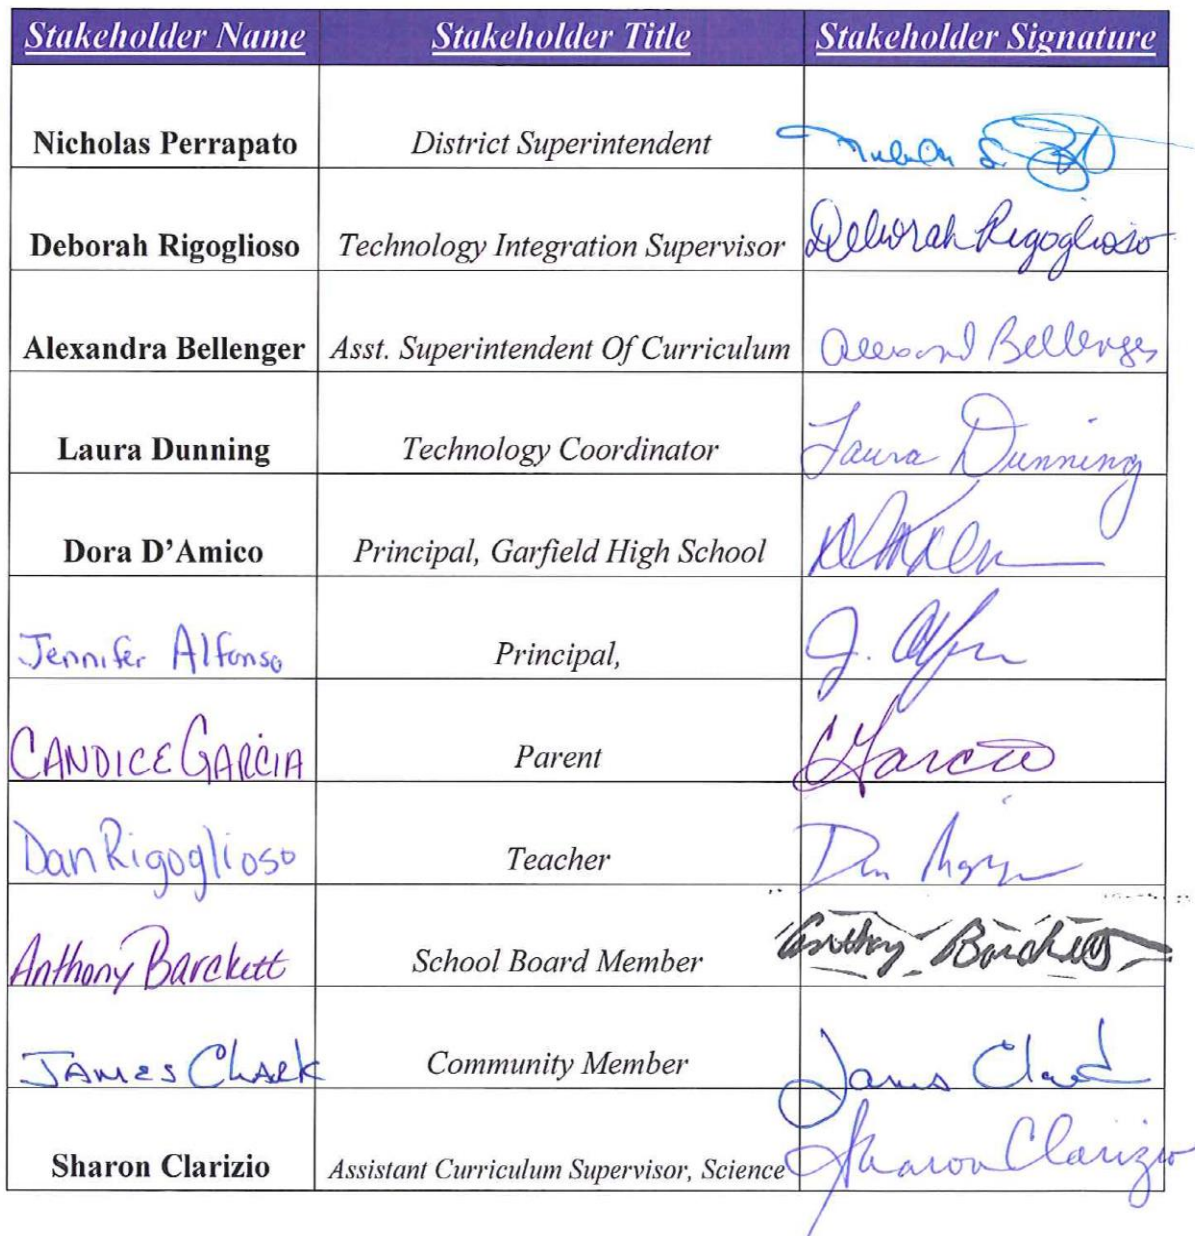 Stakeholder Name Stakeholder Title Stakeholder Signature
Nicholas Perrapato District Superintendent
Deborah Rigoglioso Technology Integration Supervisor Deborah Rigoglioso
Alexandra Bellenger Asst. Superintendent Of Curriculum Bellenger
Laura Dunning Technology Coordinator Laura Dunning
Dora D’Amico Principal, Garfield High School
Jennifer Alfonso Principal, J.
CANDICE GARCIA Parent CGarcia
Dan Rigoglioso Teacher Dan
Anthony Barckett School Board Member Anthony Barckett
JAMES CLARK Community Member James Clark
Sharon Clarizio Assistant Curriculum Supervisor, Science Sharon Clarizio